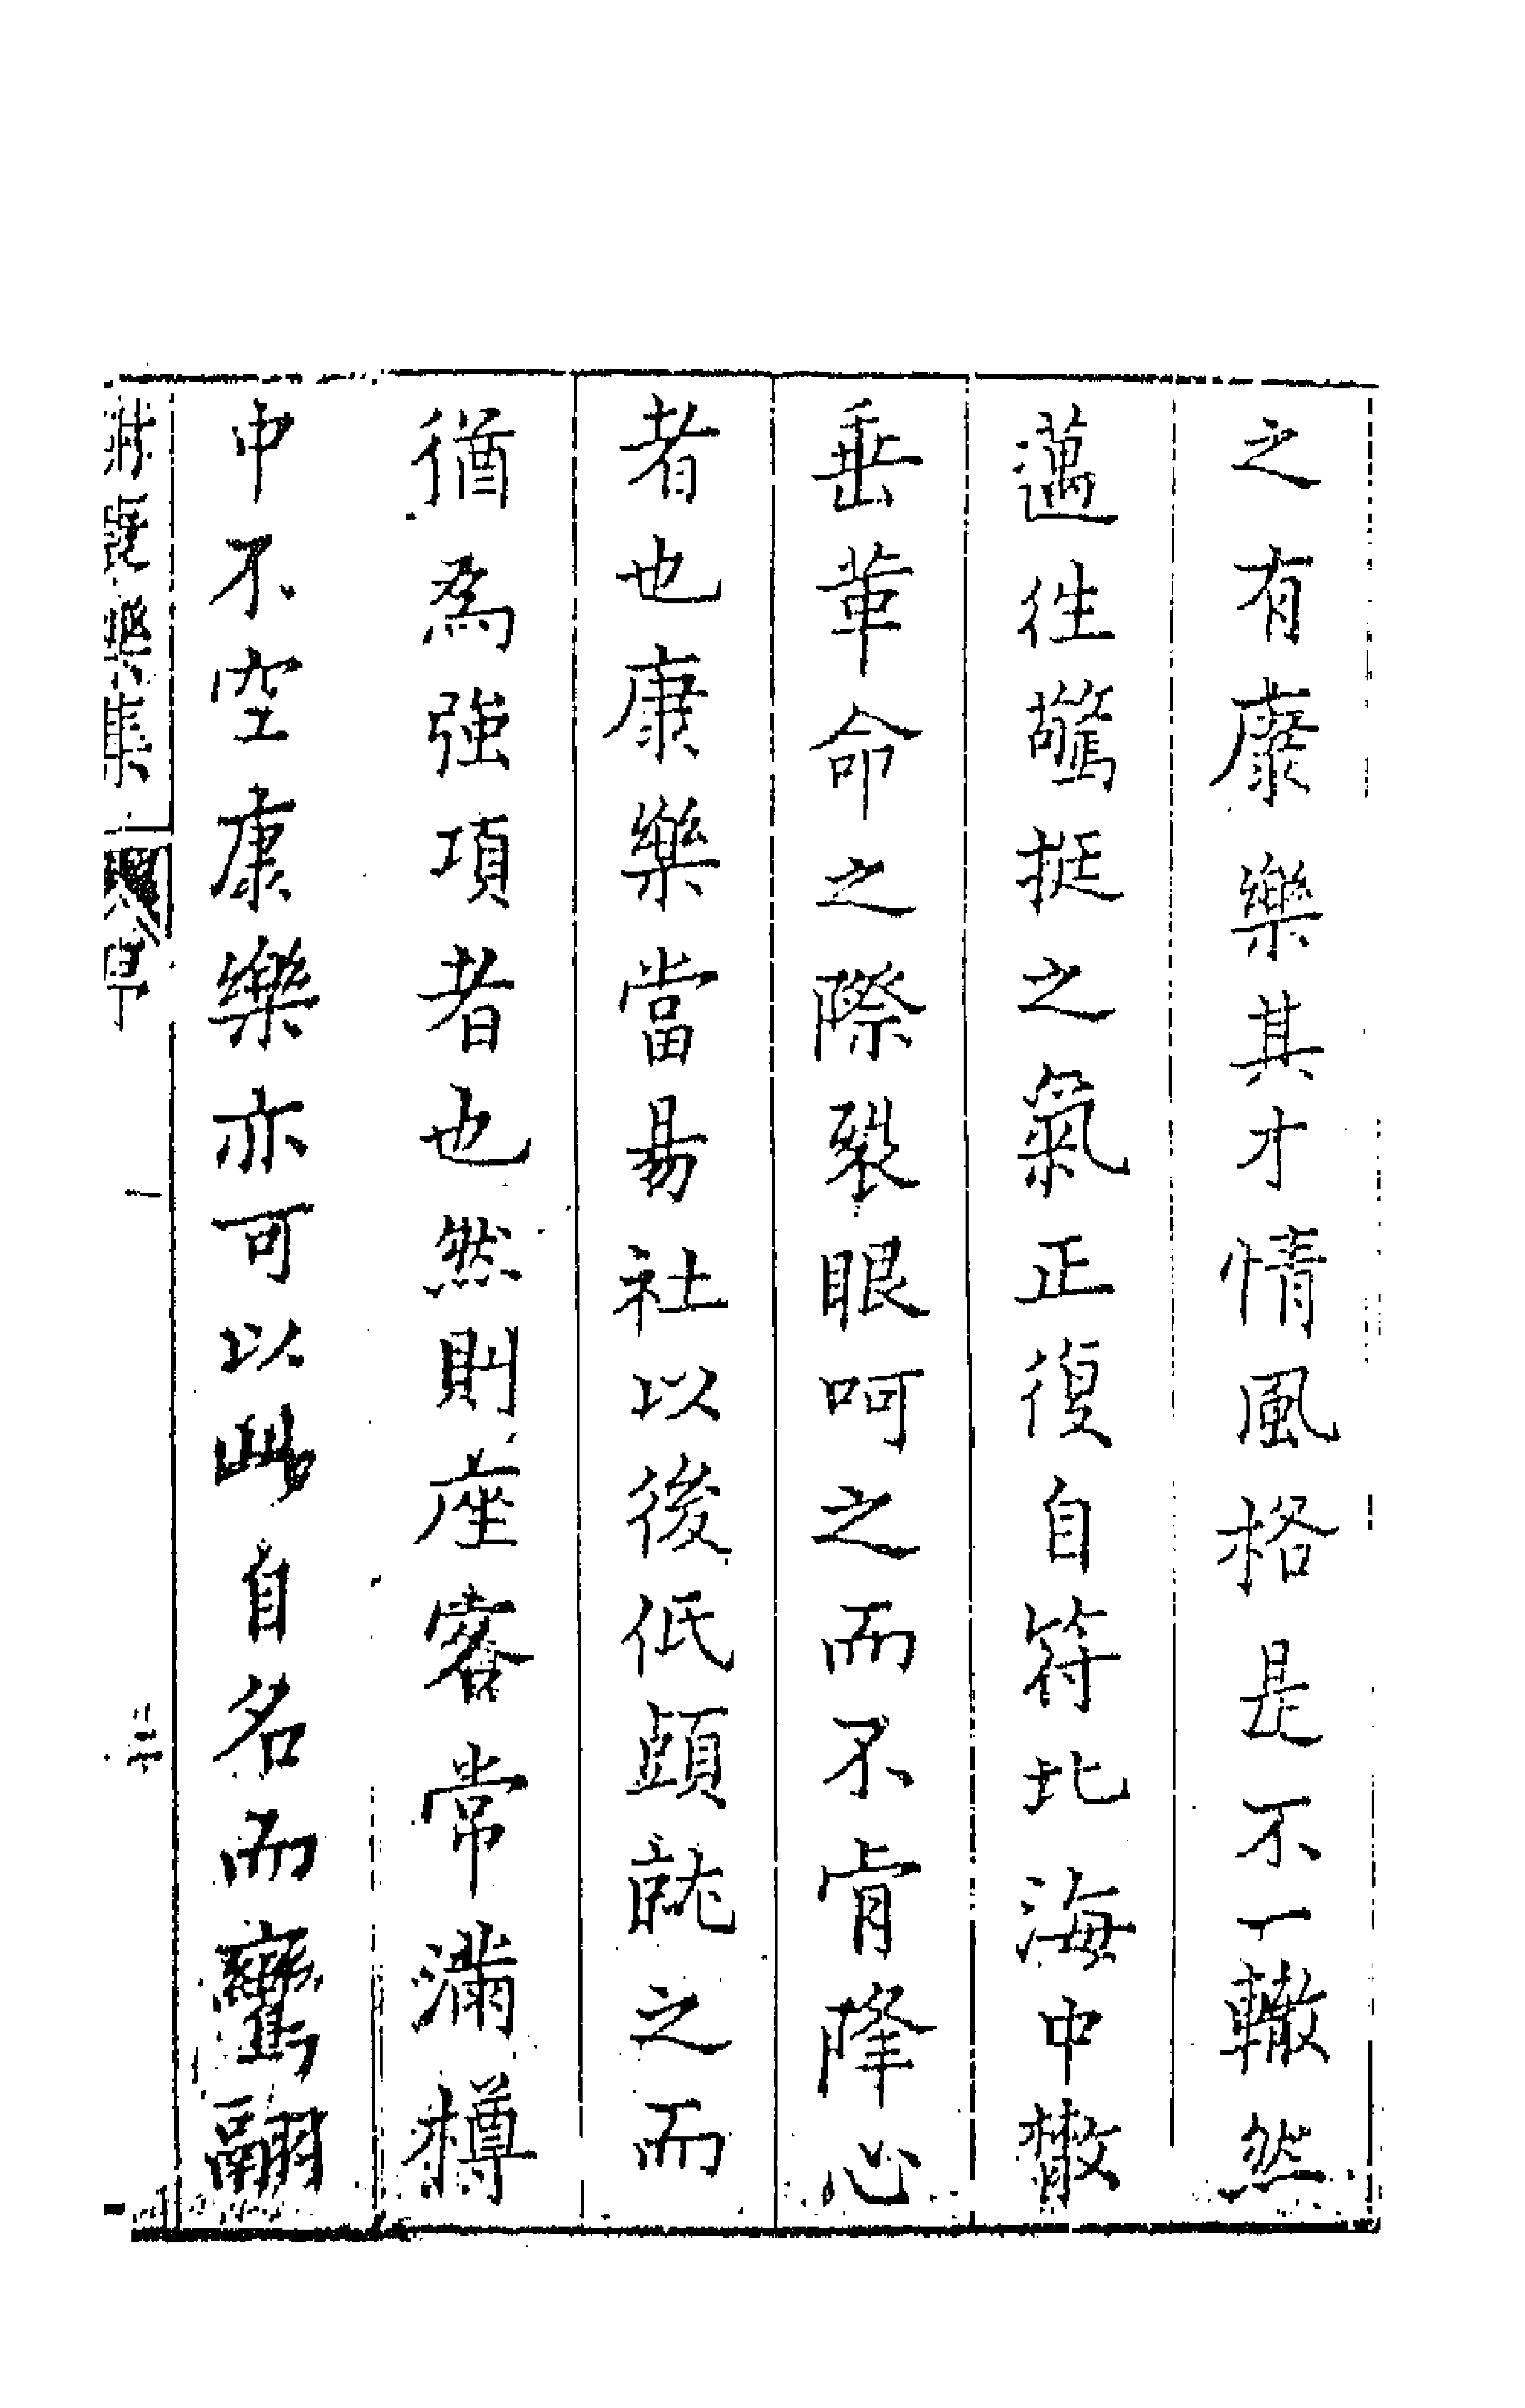 之有康樂其才情風格是不一轍然
邁徃驚挺之氣正復自符北海中散
垂革命之際裂眼呵之而不肯降心
者也康樂當易社以後低頭就之而
猶為強項者也然則座客常滿樽
中不空康樂亦可以此自名而鸞翮
康樂集